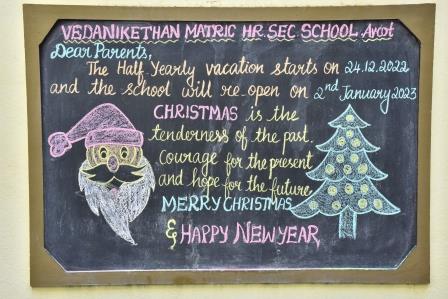 VEDANIKETHAN MATRIC HR. SEC SCHOOL Arcot
Dear Parents,
The Half Yearly vacation starts on 24.12.2022
and the school will re-open on 2nd January 2023
CHRISTMAS is the
tenderness of the past.
Courage for the present
and hope for the future.
MERRY CHRISTMAS
& HAPPY NEW YEAR